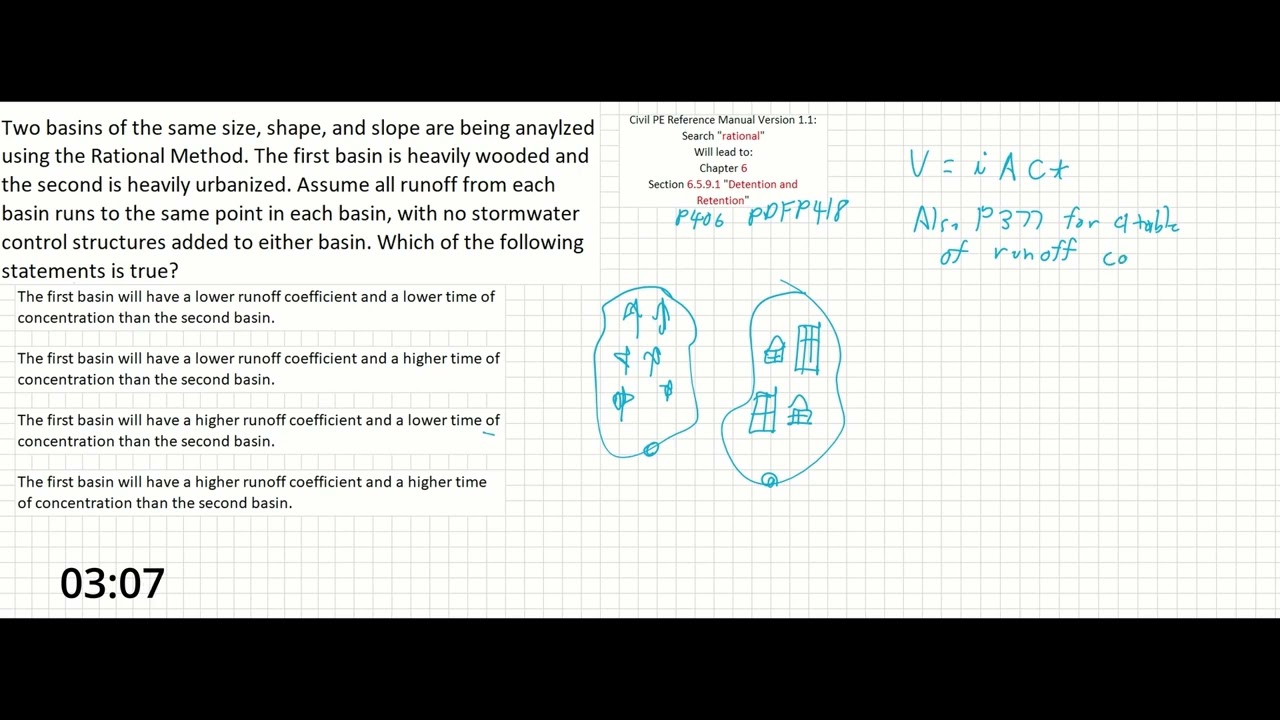 Two basins of the same size, shape, and slope are being anaylzed
using the Rational Method. The first basin is heavily wooded and
the second is heavily urbanized. Assume all runoff from each
basin runs to the same point in each basin, with no stormwater
control structures added to either basin. Which of the following
statements is true?
The first basin will have a lower runoff coefficient and a lower time of
concentration than the second basin.
The first basin will have a lower runoff coefficient and a higher time of
concentration than the second basin.
The first basin will have a higher runoff coefficient and a lower time of
concentration than the second basin.
The first basin will have a higher runoff coefficient and a higher time
of concentration than the second basin.
03:07
Civil PE Reference Manual Version 1.1:
Search "rational"
Will lead to:
Chapter 6
Section 6.5.9.1 "Detention and
Retention"
P406 PDFP418
V = i A C t
Also P377 for a table
of runoff co